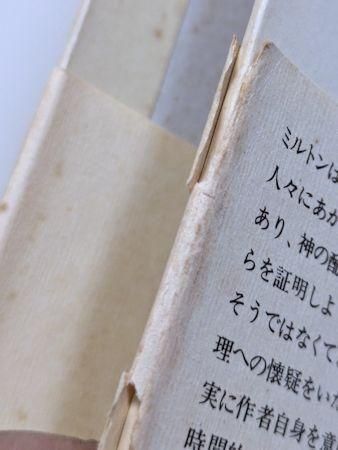 ミルトンは
人々にあか
あり、神の配
らを証明しよ
そうではなくて
理への懐疑をいた
実に作者自身を意
時間的